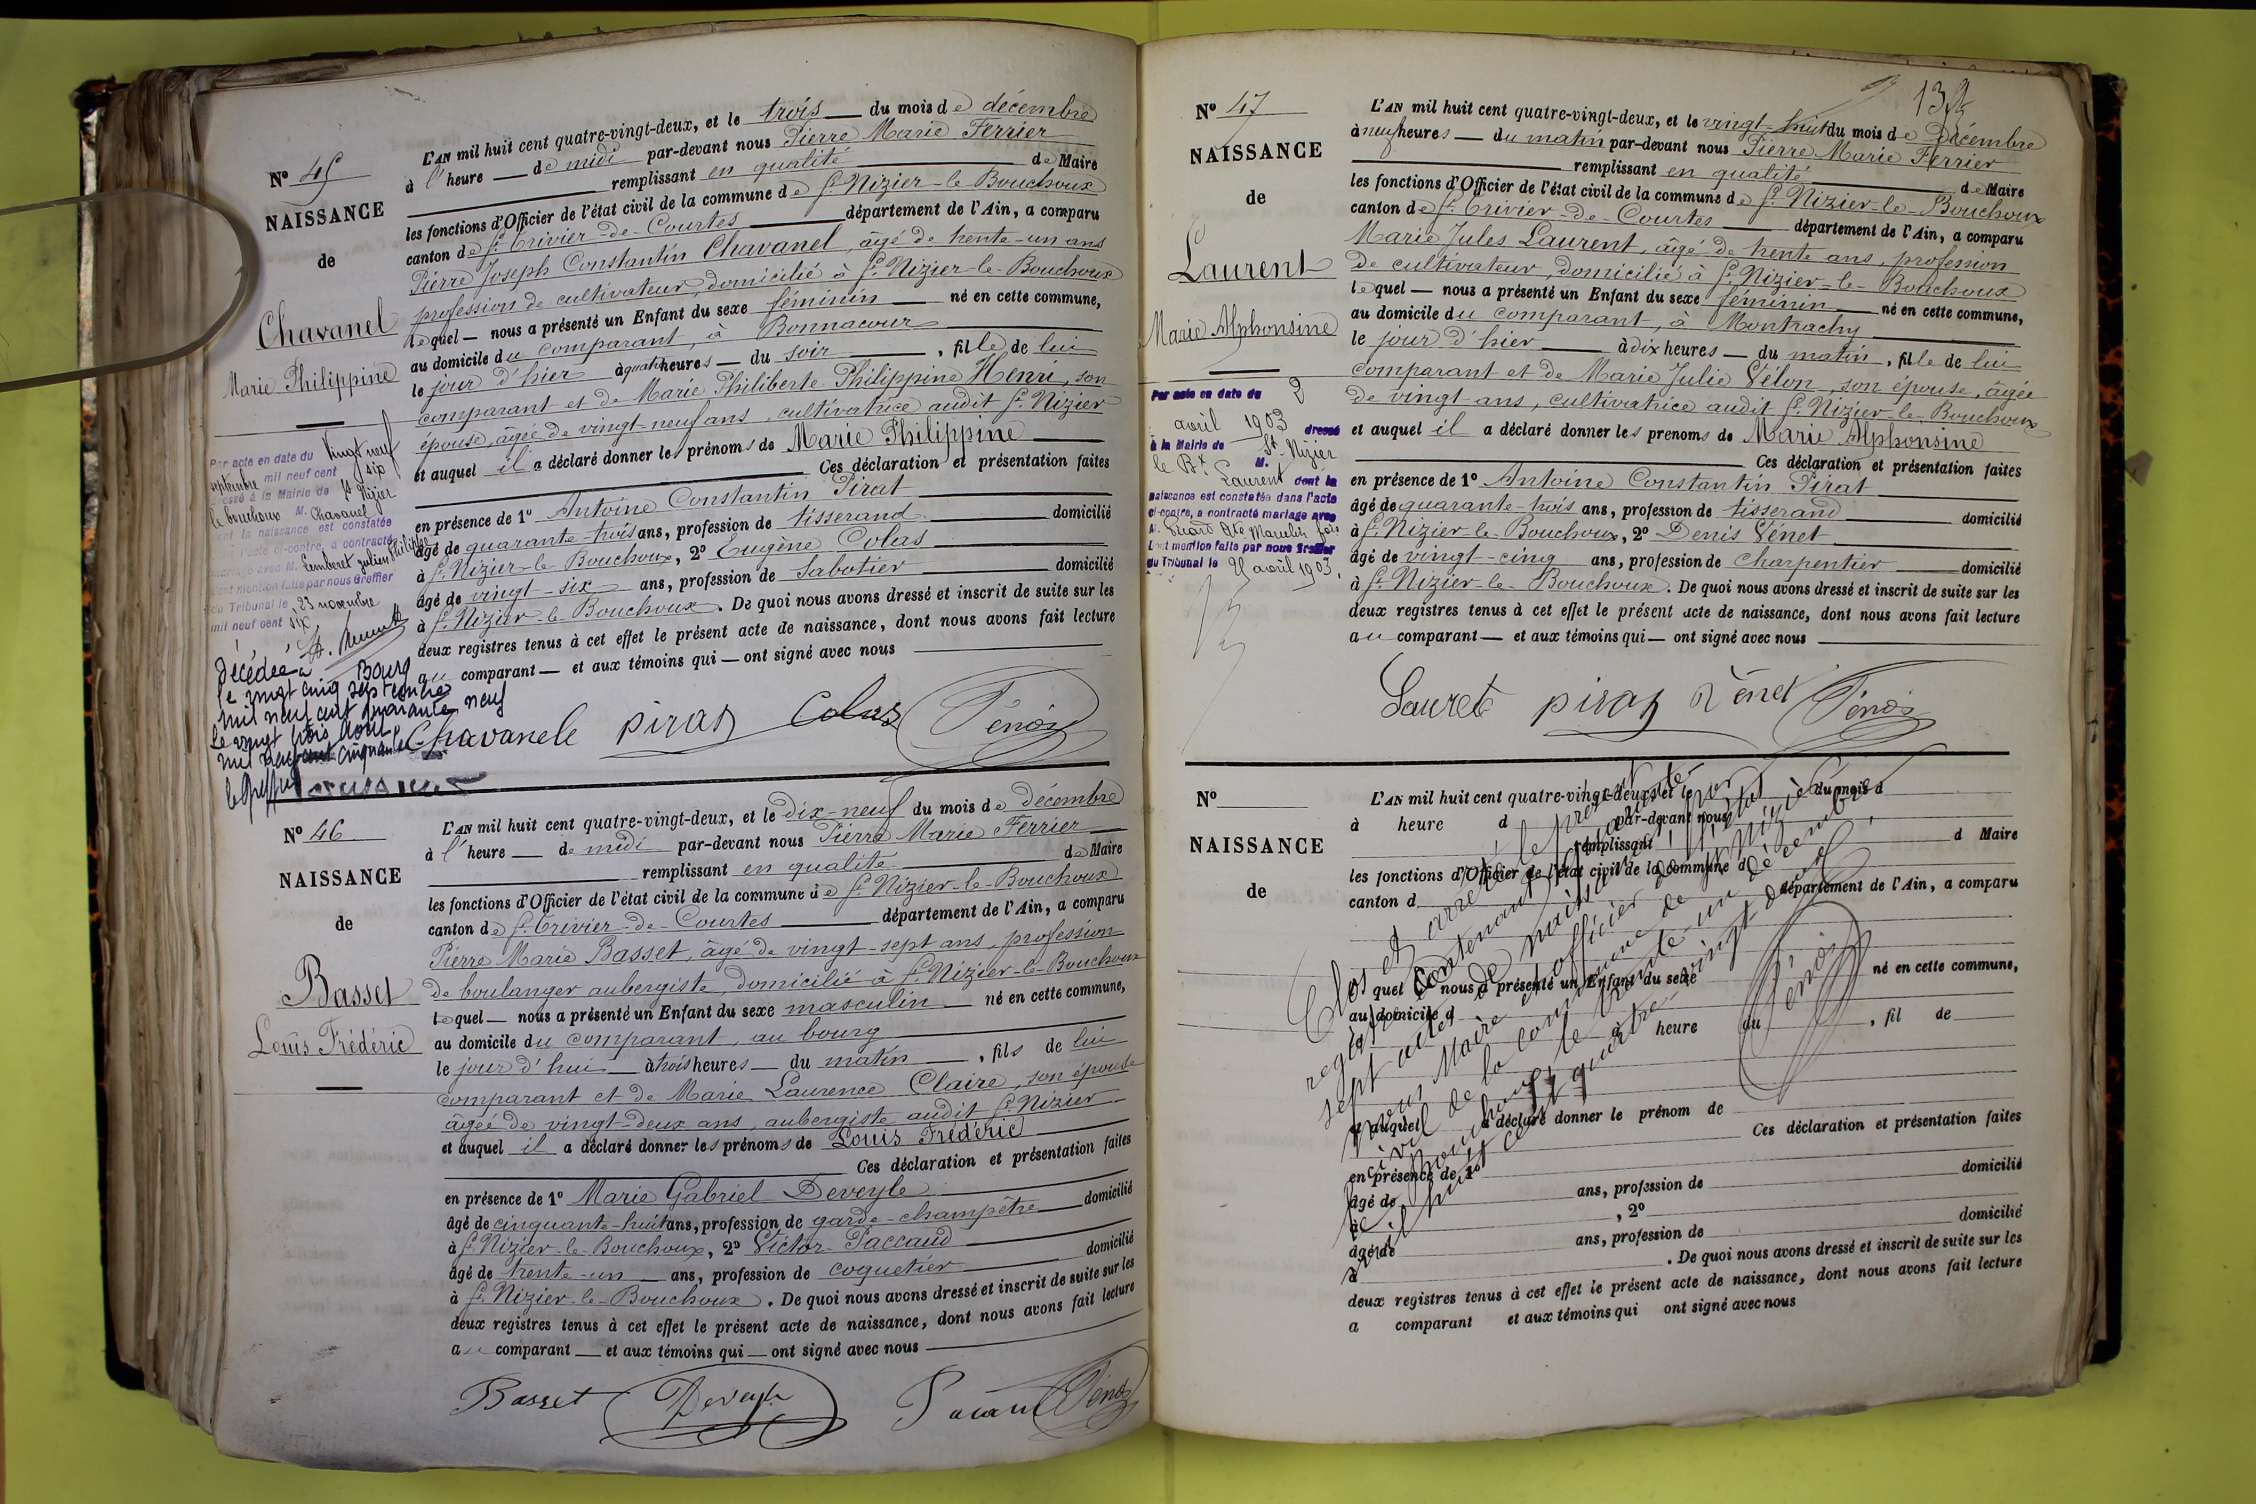 N° 45
NAISSANCE
de
Chavanel
Marie Philippine
Par acte en date du vingt neuf
septembre mil neuf cent six
dressé à la Mairie de St Nizier
le bouchoux M. Chavanel
dont la naissance est constatée
dans l'acte ci-contre, a contracté
mariage avec M. Philippe
Dont mention faite par nous Greffier
du Tribunal le 23 novembre
mil neuf cent six
Décédée à Bourg
le vingt cinq septembre
mil neuf cent quarante neuf
Le vingt trois Août
mil neuf cent cinquante
le Greffier
L'AN mil huit cent quatre-vingt-deux, et le trois du mois de décembre
à l'heure de midi par-devant nous Pierre Marie Ferrier
remplissant en qualité de Maire
les fonctions d'Officier de l'état civil de la commune de St Nizier-le-Bouchoux
canton de St Trivier-de-Courtes département de l'Ain, a comparu
Pierre Joseph Constantin Chavanel, âgé de trente-un ans
profession de cultivateur, domicilié à St Nizier-le-Bouchoux
lequel nous a présenté un Enfant du sexe féminin né en cette commune,
au domicile du comparant, à Bonnacour
le jour d'hier à quatre heures du soir, fille de lui
comparant et de Marie Philiberte Philippine Henri, son
épouse, âgée de vingt-neuf ans, cultivatrice audit St Nizier
et auquel il a déclaré donner les prénoms de Marie Philippine
Ces déclaration et présentation faites
en présence de 1° Antoine Constantin Pirat
âgé de quarante-trois ans, profession de tisserand domicilié
à St Nizier-le-Bouchoux, 2° Eugène Colas
âgé de vingt-six ans, profession de Sabotier domicilié
à St Nizier-le-Bouchoux. De quoi nous avons dressé et inscrit de suite sur les
deux registres tenus à cet effet le présent acte de naissance, dont nous avons fait lecture
au comparant et aux témoins qui ont signé avec nous
Chavanele pirat Colas
N° 46
NAISSANCE
de
Basset
Louis Frédéric
L'AN mil huit cent quatre-vingt-deux, et le dix-neuf du mois de décembre
à l'heure de midi par-devant nous Pierre Marie Ferrier
remplissant en qualité de Maire
les fonctions d'Officier de l'état civil de la commune de St Nizier-le-Bouchoux
canton de St Trivier-de-Courtes département de l'Ain, a comparu
Pierre Marie Basset, âgé de vingt-sept ans, profession
de boulanger aubergiste, domicilié à St Nizier-le-Bouchoux
lequel nous a présenté un Enfant du sexe masculin né en cette commune,
au domicile du comparant, au bourg
le jour d'hui à trois heures du matin, fils de lui
comparant et de Marie Laurence Claire, son épouse
âgée de vingt-deux ans, aubergiste audit St Nizier
et auquel il a déclaré donner les prénoms de Louis Frédéric
Ces déclaration et présentation faites
en présence de 1° Marie Gabriel Deveyle
âgé de cinquante-huit ans, profession de garde-champêtre domicilié
à St Nizier-le-Bouchoux, 2° Victor Paccaud
âgé de trente-un ans, profession de coquetier domicilié
à St Nizier-le-Bouchoux. De quoi nous avons dressé et inscrit de suite sur les
deux registres tenus à cet effet le présent acte de naissance, dont nous avons fait lecture
au comparant et aux témoins qui ont signé avec nous
Basset Deveyle
132
N° 47
NAISSANCE
de
Laurent
Marie Alphonsine
Par acte en date du 2
avril 1903 dressé
à la Mairie de St Nizier
le Bx M.
Laurent dont la
naissance est constatée dans l'acte
ci-contre, a contracté mariage avec
M.
Dont mention faite par nous Greffier
du Tribunal le 21 avril 1903.
L'AN mil huit cent quatre-vingt-deux, et le vingt-huit du mois de Décembre
à neuf heures du matin par-devant nous Pierre Marie Ferrier
remplissant en qualité de Maire
les fonctions d'Officier de l'état civil de la commune de St Nizier-le-Bouchoux
canton de St Trivier-de-Courtes département de l'Ain, a comparu
Marie Jules Laurent, âgé de trente ans, profession
de cultivateur, domicilié à St Nizier-le-Bouchoux
lequel nous a présenté un Enfant du sexe féminin né en cette commune,
au domicile du comparant, à Montrachy
le jour d'hier à dix heures du matin, fille de lui
comparant et de Marie Julie Vélon, son épouse, âgée
de vingt ans, cultivatrice audit St Nizier-le-Bouchoux
et auquel il a déclaré donner les prenoms de Marie Alphonsine
Ces déclaration et présentation faites
en présence de 1° Antoine Constantin Pirat
âgé de quarante-trois ans, profession de tisserand domicilié
à St Nizier-le-Bouchoux, 2° Denis Vénet
âgé de vingt-cinq ans, profession de charpentier domicilié
à St Nizier-le-Bouchoux. De quoi nous avons dressé et inscrit de suite sur les
deux registres tenus à cet effet le présent acte de naissance, dont nous avons fait lecture
au comparant et aux témoins qui ont signé avec nous
Lauret pirat Vénet
N°
NAISSANCE
de
L'AN mil huit cent quatre-vingt-deux, et le du mois d
à heure d par-devant nous
remplissant d Maire
les fonctions d'Officier de l'état civil de la commune d
canton d département de l'Ain, a comparu
quel nous a présenté un Enfant du sexe né en cette commune,
au domicile d
le à heure du , fil de
et auquel a déclaré donner le prénom de
Ces déclaration et présentation faites
en présence de 1°
âgé de ans, profession de domicilié
à , 2°
âgé de ans, profession de domicilié
à . De quoi nous avons dressé et inscrit de suite sur les
deux registres tenus à cet effet le présent acte de naissance, dont nous avons fait lecture
a comparant et aux témoins qui ont signé avec nous
Clos et arrêté le présent
registre contenant quarante-
sept actes de naissance, par
nous Maire et officier de l'état
civil de la commune de St Nizier-
le-Bouchoux, le trente-un décembre
mil huit cent quatre-vingt-deux.